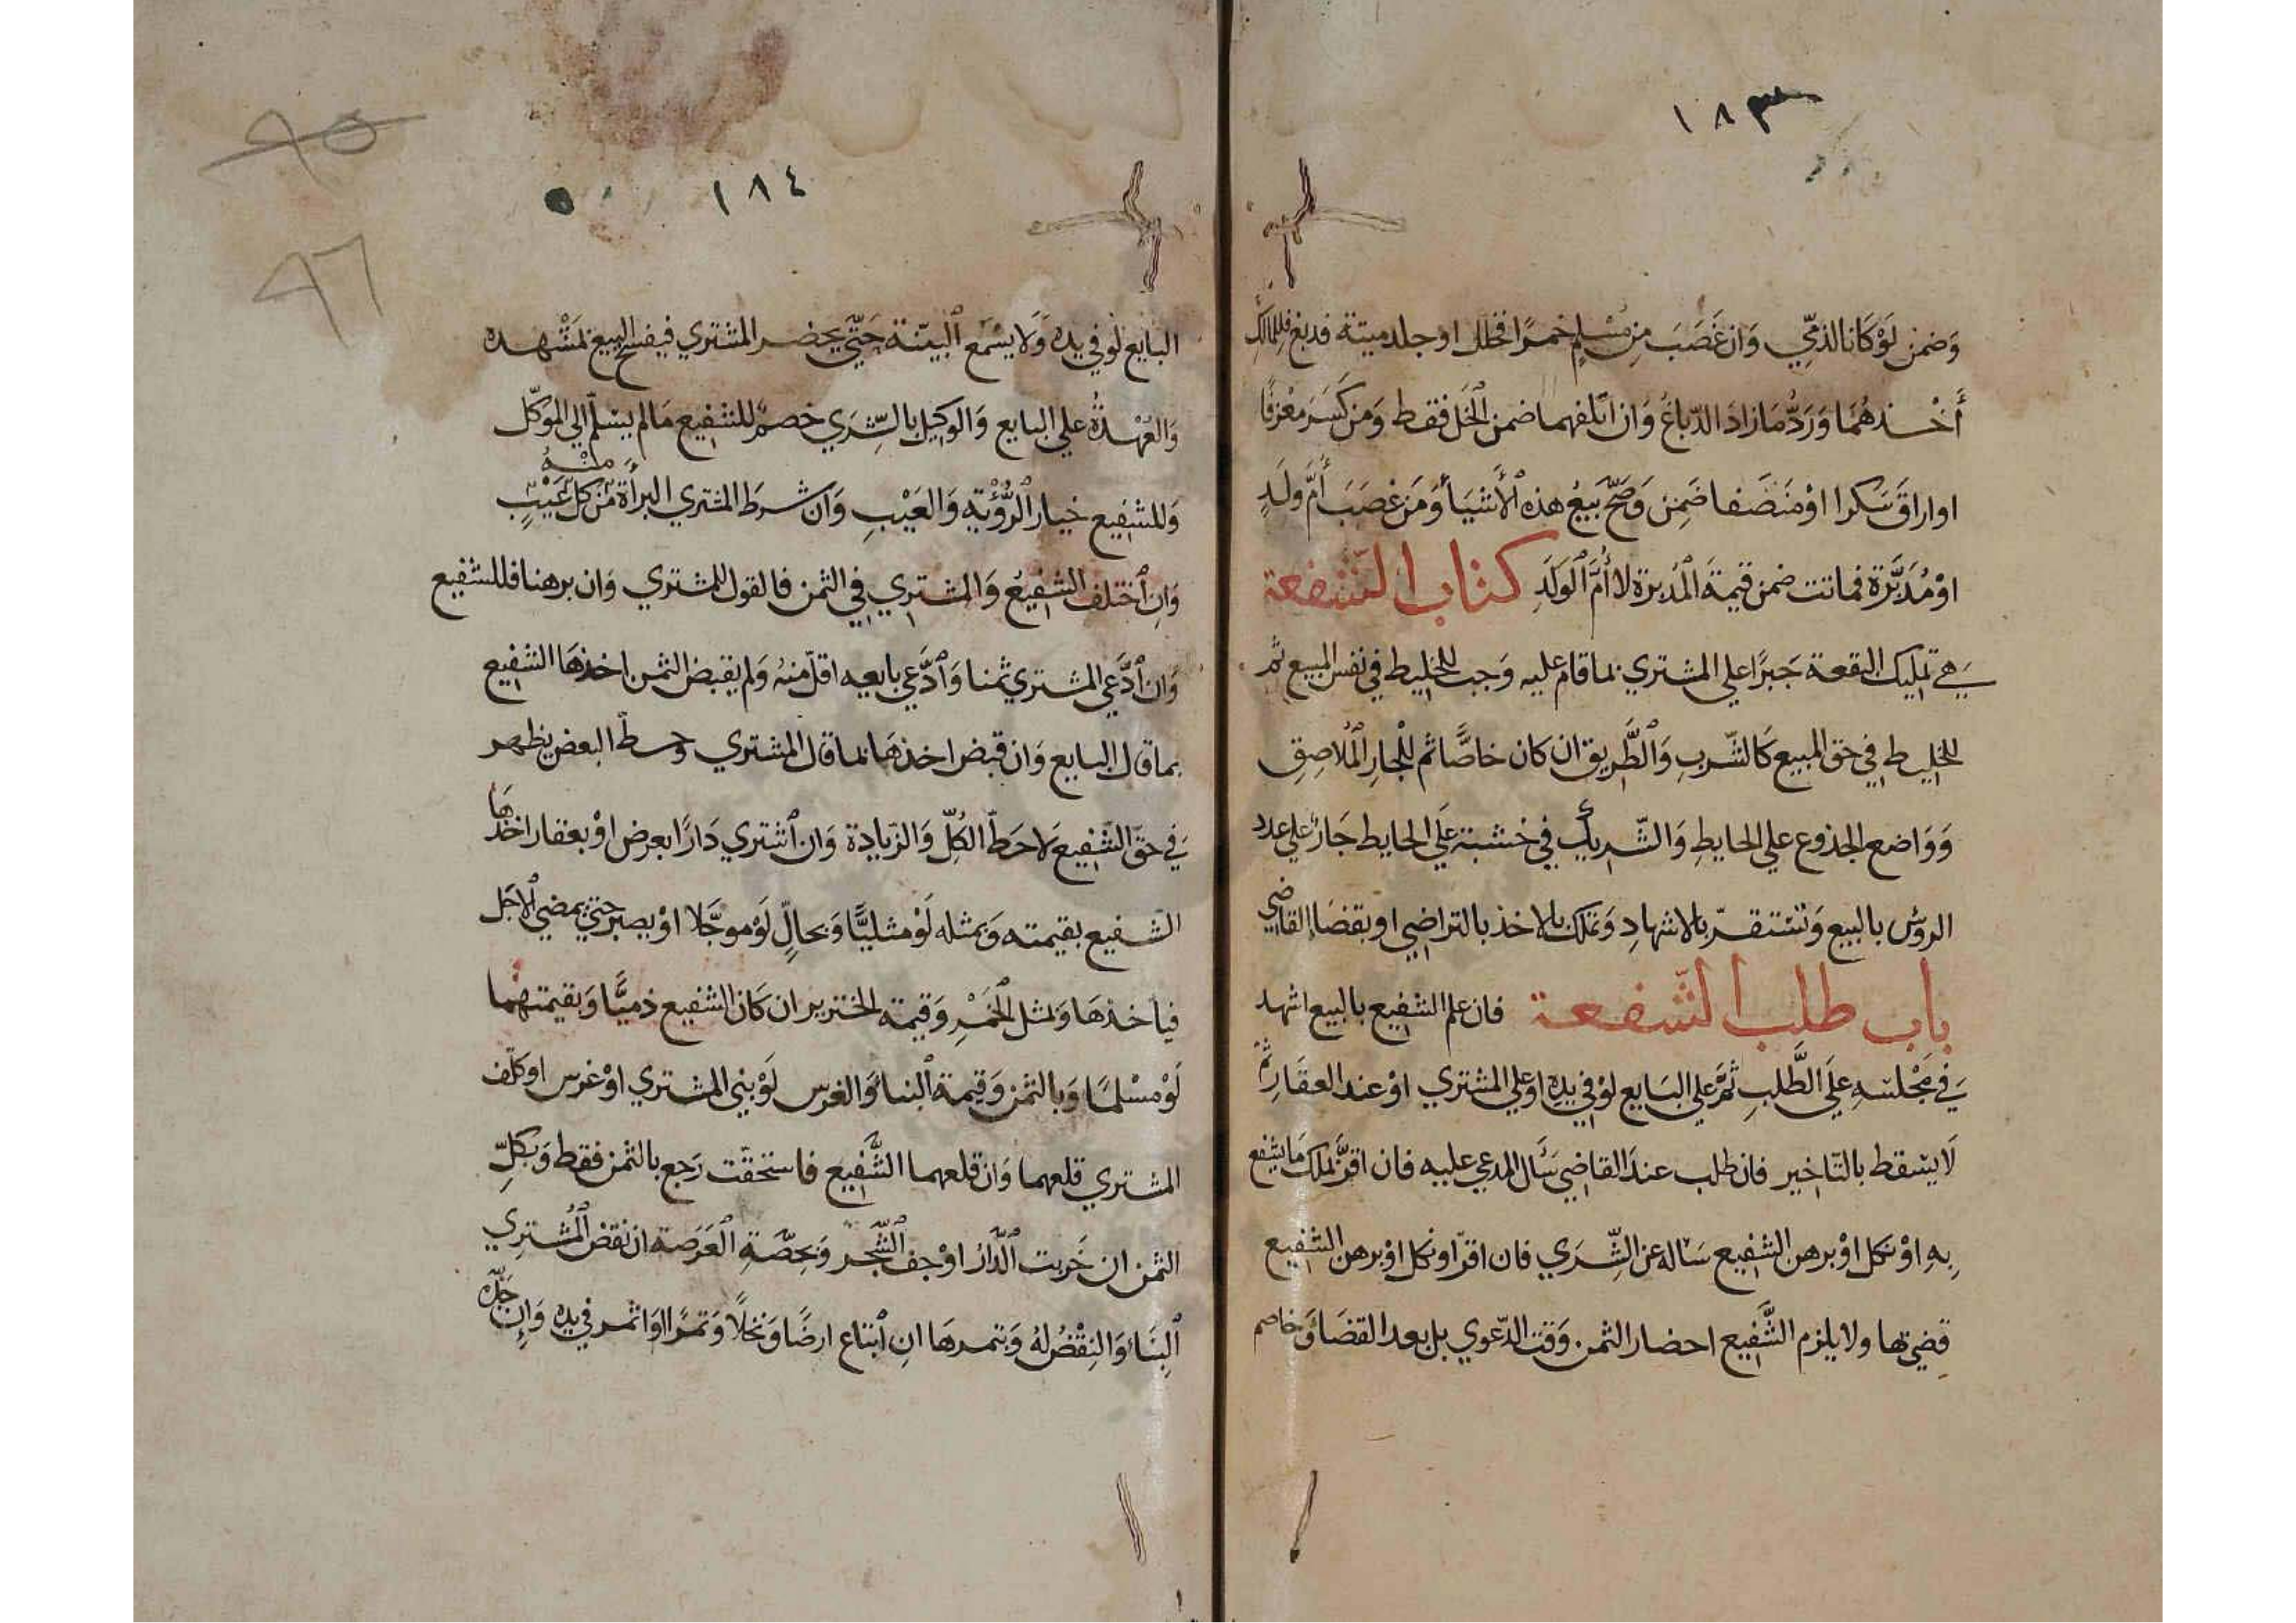 ١٨٣
وَضمن لَوْ كَانا لذمّي وَان غَصَبَ مِن مُسْلمٍ خمرًا فخلل او جلد ميتة فدبغ فللمالك
أَخْذهُمَا وَرَدُّ مَا زادَ الدّباغُ وَان اتلفهما ضمن الخل فقط وَمن كَسَرَ معْزفًا
او اراق سَكرا اوْ منَصّفا ضَمِن وَصَحّ بَيعُ هذه الأشيَأ وَمَن غصَبَ أمّ ولَدٍ
اوْ مُدَبَّرَة فماتت ضمن قيمةَ المُدبرة لا أُمّ الوَلَدِ كتاب الشفعة
هِيَ تمليك البقعة جَبرًا على المشتري بما قام عليه وَجب للخليط في نفس المبيع ثم
للخليط في حق المبيع كَالشّربِ وَالطَّريق ان كان خاصًّا ثم للْجارِ المُلَاصِقِ
وَوَاضع الجذوع على الحايطِ وَالشّريك في خشبة علَى الحايط جَارٌ على عدد
الروُس بالبيع وَتستقرّ بالاشهادِ وَتملك بالاخذ بالتراضي او بقضَاإالقاضي
باب طلب الشّفعة فان علم الشفيع بالبيع اشهد
في مَجْلسَهِ علَى الطَّلبِ ثمَّ على البَايع لوْ في يدِهِ اوعلى المشتري اوْ عند العقَارِ ثمّ
لَا يسْقط بالتّاخير فان طلب عندَ القاضي سَأل المدعي عليه فان اقرَّ بملك مَا يشفع
بهِ اوْ نكل اوْ برهن الشفيع سَاله عن الشّرَي فان اقرّ او نكل اوْ برهن الشفيع
قضِيَ بها ولا يلزم الشَّفيع احضار الثمن وَقت الدّعوي بل بعد القضَأ وَخاصم
١٨٤
٩٥
٩٦
البايع لو في يدِه وَلا يسْمَع البيّنة حَتّى يحضر المشتري فيفسخ البيع بمَشْهده
وَالعُهْدةُ على البايع وَالوكيل بالشّرَي خصمٌ للشفيع مَا لم يسَلّم الي الموكّل
وَللشفيع خيار الرُّؤية وَالعَيْبِ وَان شرطَ المشتري البرأة منْهُ من كل عَيْبٍ
وَانِ اختلف الشفيعُ وَالمشتري في الثمن فالقول للمشتري وَان برهنا فللشفيع
وَان ادَّعَى المشتري ثمنا وَادَّعي بايعه اقلّ منهُ وَلم يقبض الثمن اخذهَا الشفيع
بما قال البايع وَان قبض اخذهَا بما قال المشتري وحطّ البعض يظهر
في حقّ الشّفيع لا حَطّ الكُلّ وَالزيادة وَان اشتري دَارًا بعرض اوْ بعقار اخذهَا
الشّفيع بقيمته وَبمثله لَوْ مثليًّا وَبحالٍّ لَوْ موجَّلا اوْ يصبر حتى يمضي الاجَل
فياخذهَا وَبمثل الخَمْرِ وَقيمة الخنزير ان كَان الشفيع ذميًّا وَبقيمتهُما
لَوْ مسْلمًا وَبالثمن وَقيمة البنأ وَالغرس لوْ بني المشتري اوْ غرس او كلّف
المشتري قلعهما وَان قلعهما الشّفيع فاستحقّت رَجع بالثمن فقط وَبكلّ
الثمن ان خَربت الدّار اوْ جف الشّجر وَبحصّة العَرَصة ان نقض المُشترِي
البِنَأ وَالنِقْضُ لهُ وَبتمرهَا انِ ابتاع ارضًا وَنخلًا وَتمرًا اوَاثمر في يدِه وَانِ جَدّه